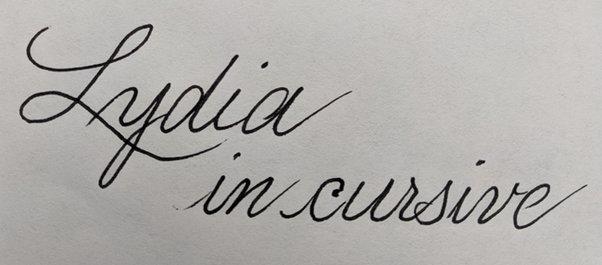 Lydia
in cursive